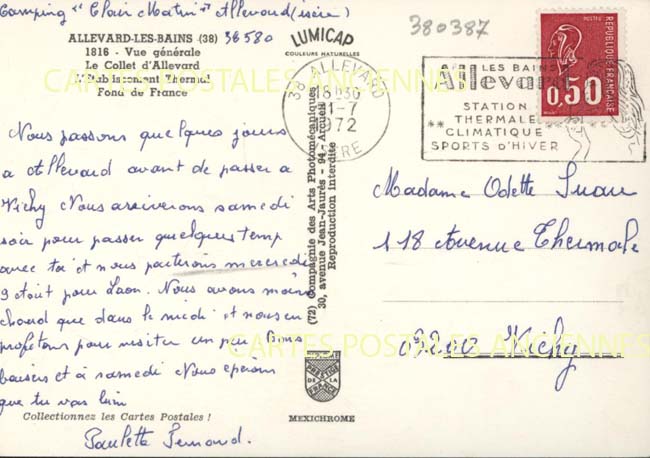 Camping "Clair Matin" Allevard (isère)
38580
380387
ALLEVARD-LES-BAINS (38)
1816 - Vue générale
Le Collet d'Allevard
L'Etablissement Thermal
Fond de France
LUMICAP
COULEURS NATURELLES
Nous passons quelques jours
a Allevard avant de passer a
Vichy Nous arriverons samedi
soir pour passer quelques temp
avec toi et nous partirons mercredi
9 août pour Laon. Nous avons moins
chaud que dans le midi et nous en
profitons pour visiter un peu Bons
baisers et à samedi Nous esperons
que tu vas bien
Paulette
Collectionnez les Cartes Postales !
(72) Compagnie des Arts Photomécaniques
30, avenue Jean-Jaurès - 94 - Arcueil
Reproduction Interdite
PRESTIGE
DE LA
FRANCE
MEXICHROME
38 ALLEVARD
18H30
-7
1972
ISERE
LES BAINS
Allevard
STATION
THERMALE
** CLIMATIQUE
SPORTS d'HIVER
POSTES
REPUBLIQUE FRANÇAISE
0,50
Madame Odette
118 Avenue Thermale
03200 Vichy
CARTES POSTALES ANCIENNES
CARTES POSTALES ANCIENNES